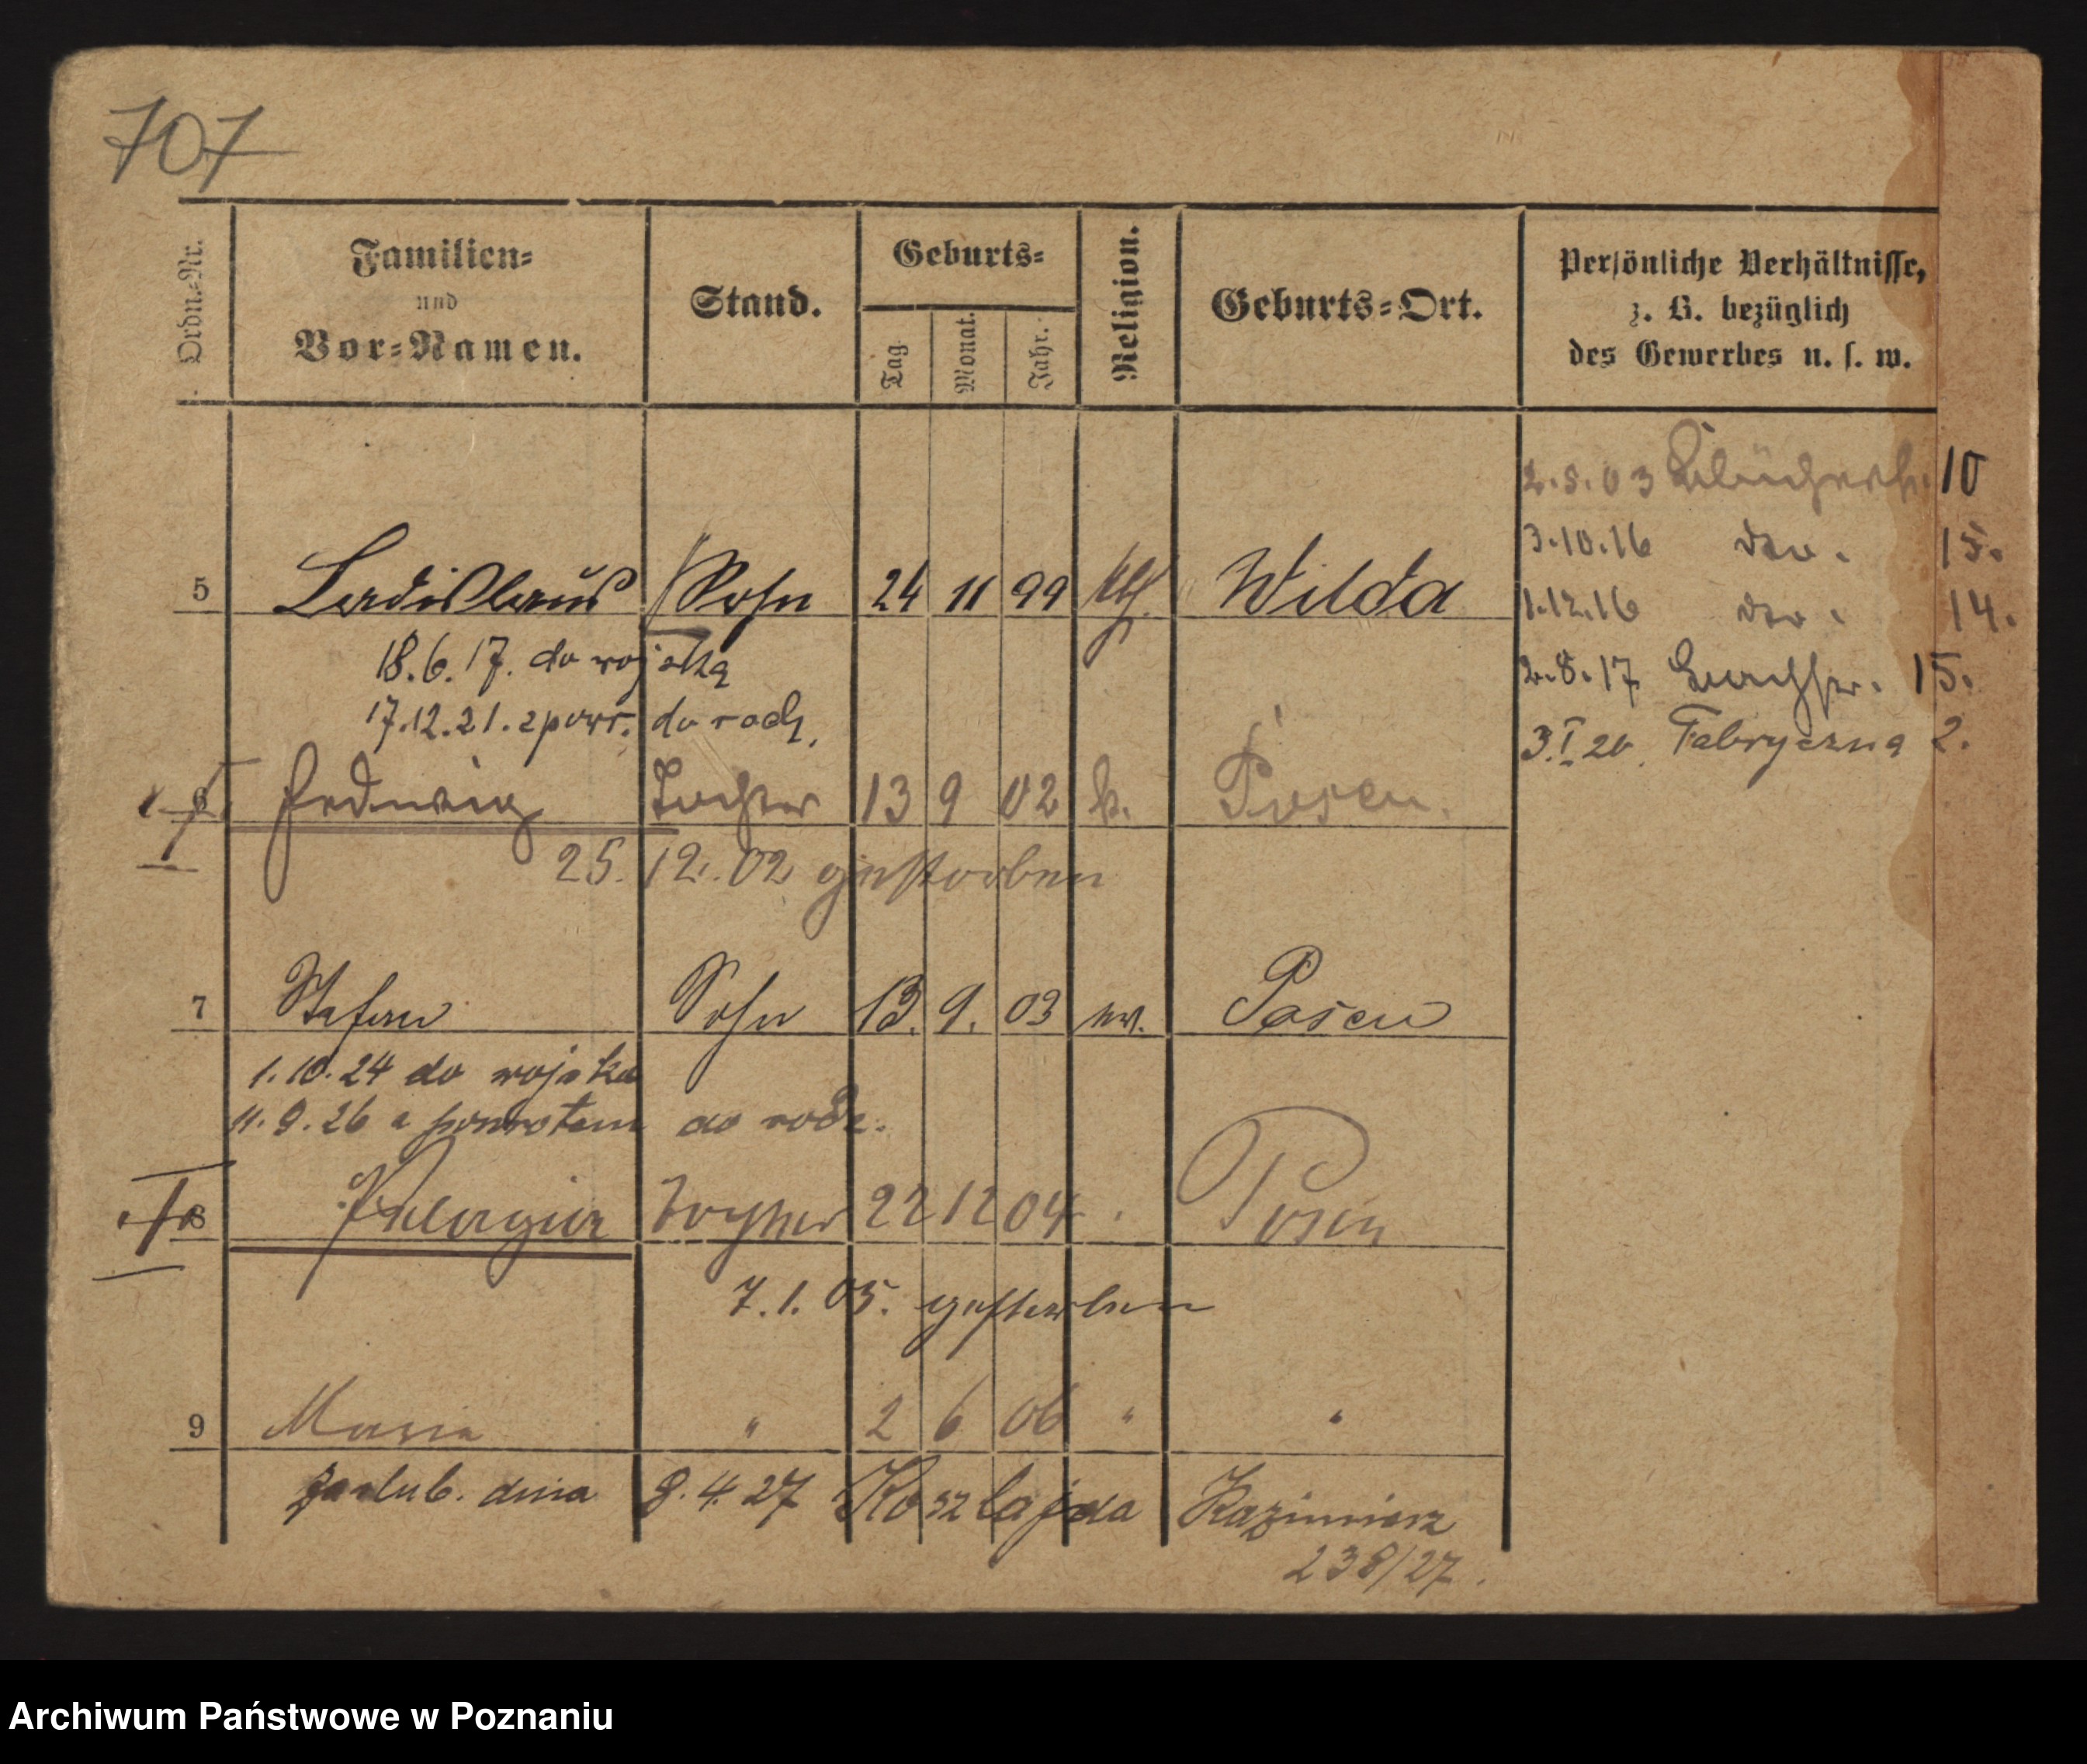 707
Ordn.-Nr. Familien- und Vor-Namen. Stand. Geburts- Tag. Monat. Jahr. Religion. Geburts-Ort. Persönliche Verhältnisse, z. B. bezüglich des Gewerbes u. s. w.
2.5.03 Blücherstr. 10
3.10.16 dto. 15.
5 Ladislaus Sohn 24 11 99 kth. Wilda
1.12.16 dto. 14.
18.6.17. do wojska
2.8.17 15.
17.12.21. z powr. do rodz.
3.I 20. Fabryczna 2.
6 Hedwig Tochter 13 9 02 k. Posen.
25.12.02 gestorben
7 Stefan Sohn 13. 9. 03 Posen
1.10.24 do wojska
11.9.26 z powrotem do rodz.
8 Pelagia Tochter 22 12 04 Posen
7.1.05. gestorben
9 Maria " 2 6 06 " "
zaślub. dnia 8.4.27 Koszlajda Kazimierz
238/27.
Archiwum Państwowe w Poznaniu